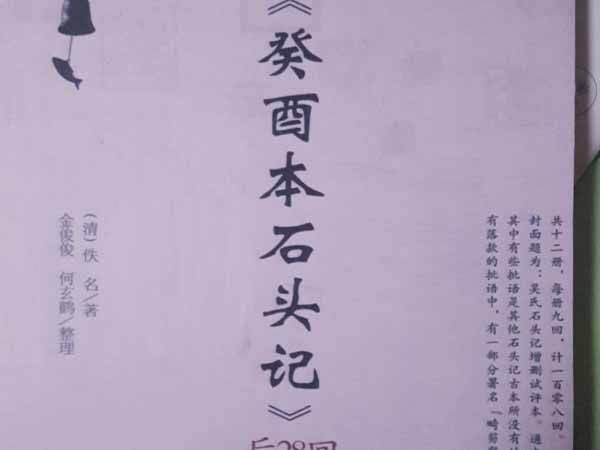 共十二册，每册九回，计一百零八回。
封面题为：吴氏石头记增删试评本。通
其中有些批语是其他石头记古本所没有
有落款的批语中，有一部分署名「畸笏
《癸酉本石头记》
后28回
（清）佚 名／著
金俊俊 何玄鹤／整理